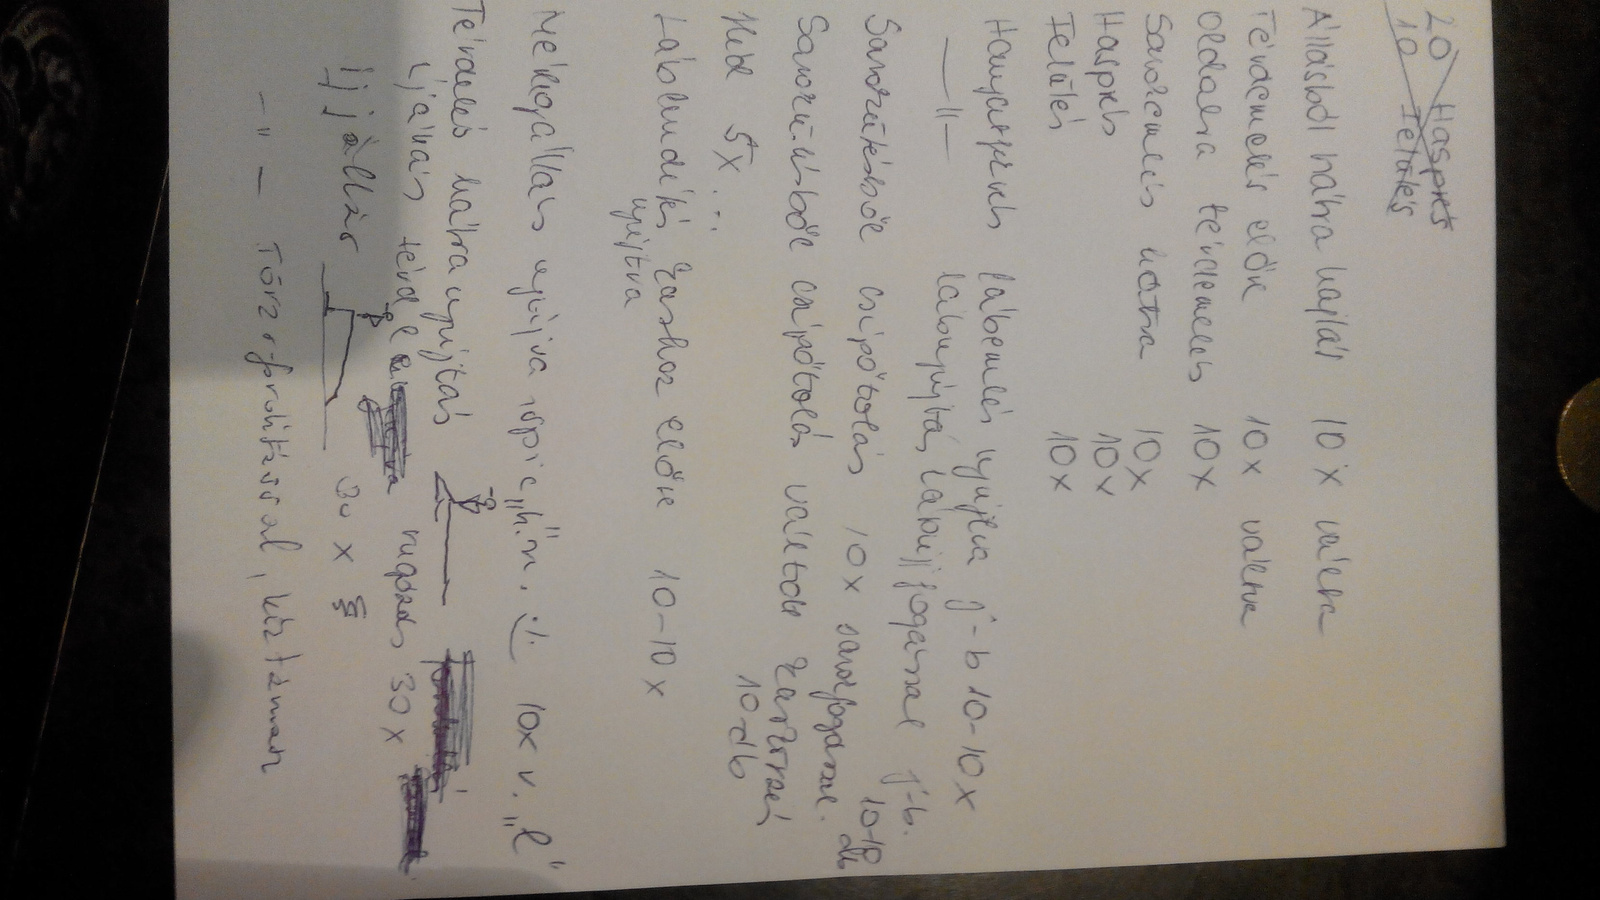 20 Hasprés
10 Felülés
Állásból hátra hajlás 10x váltva
Térdemelés előre 10x váltva
Oldalra térdemelés 10x
Sarokemelés hátra 10x
Hasprés 10x
Felülés 10x
Hanyattfekvés lábemelés nyújtva j-b 10-10x
—"— lábnyújtás, lábujj fogással j-b.
Sarokülésből csípőtolás 10x sarokfogással 10-10 db
Sarokülésből csípőtolás váltott sarokfogással.
Híd 5x
10 db
Láblendítés előre 10-10x
nyújtva
Mérlegállás nyújtva 10x v. "l"
Térdelés hátranyújtás
rugózás 30x
Íjjállás 30x
—"— Törzsfordítással, kéztámasz